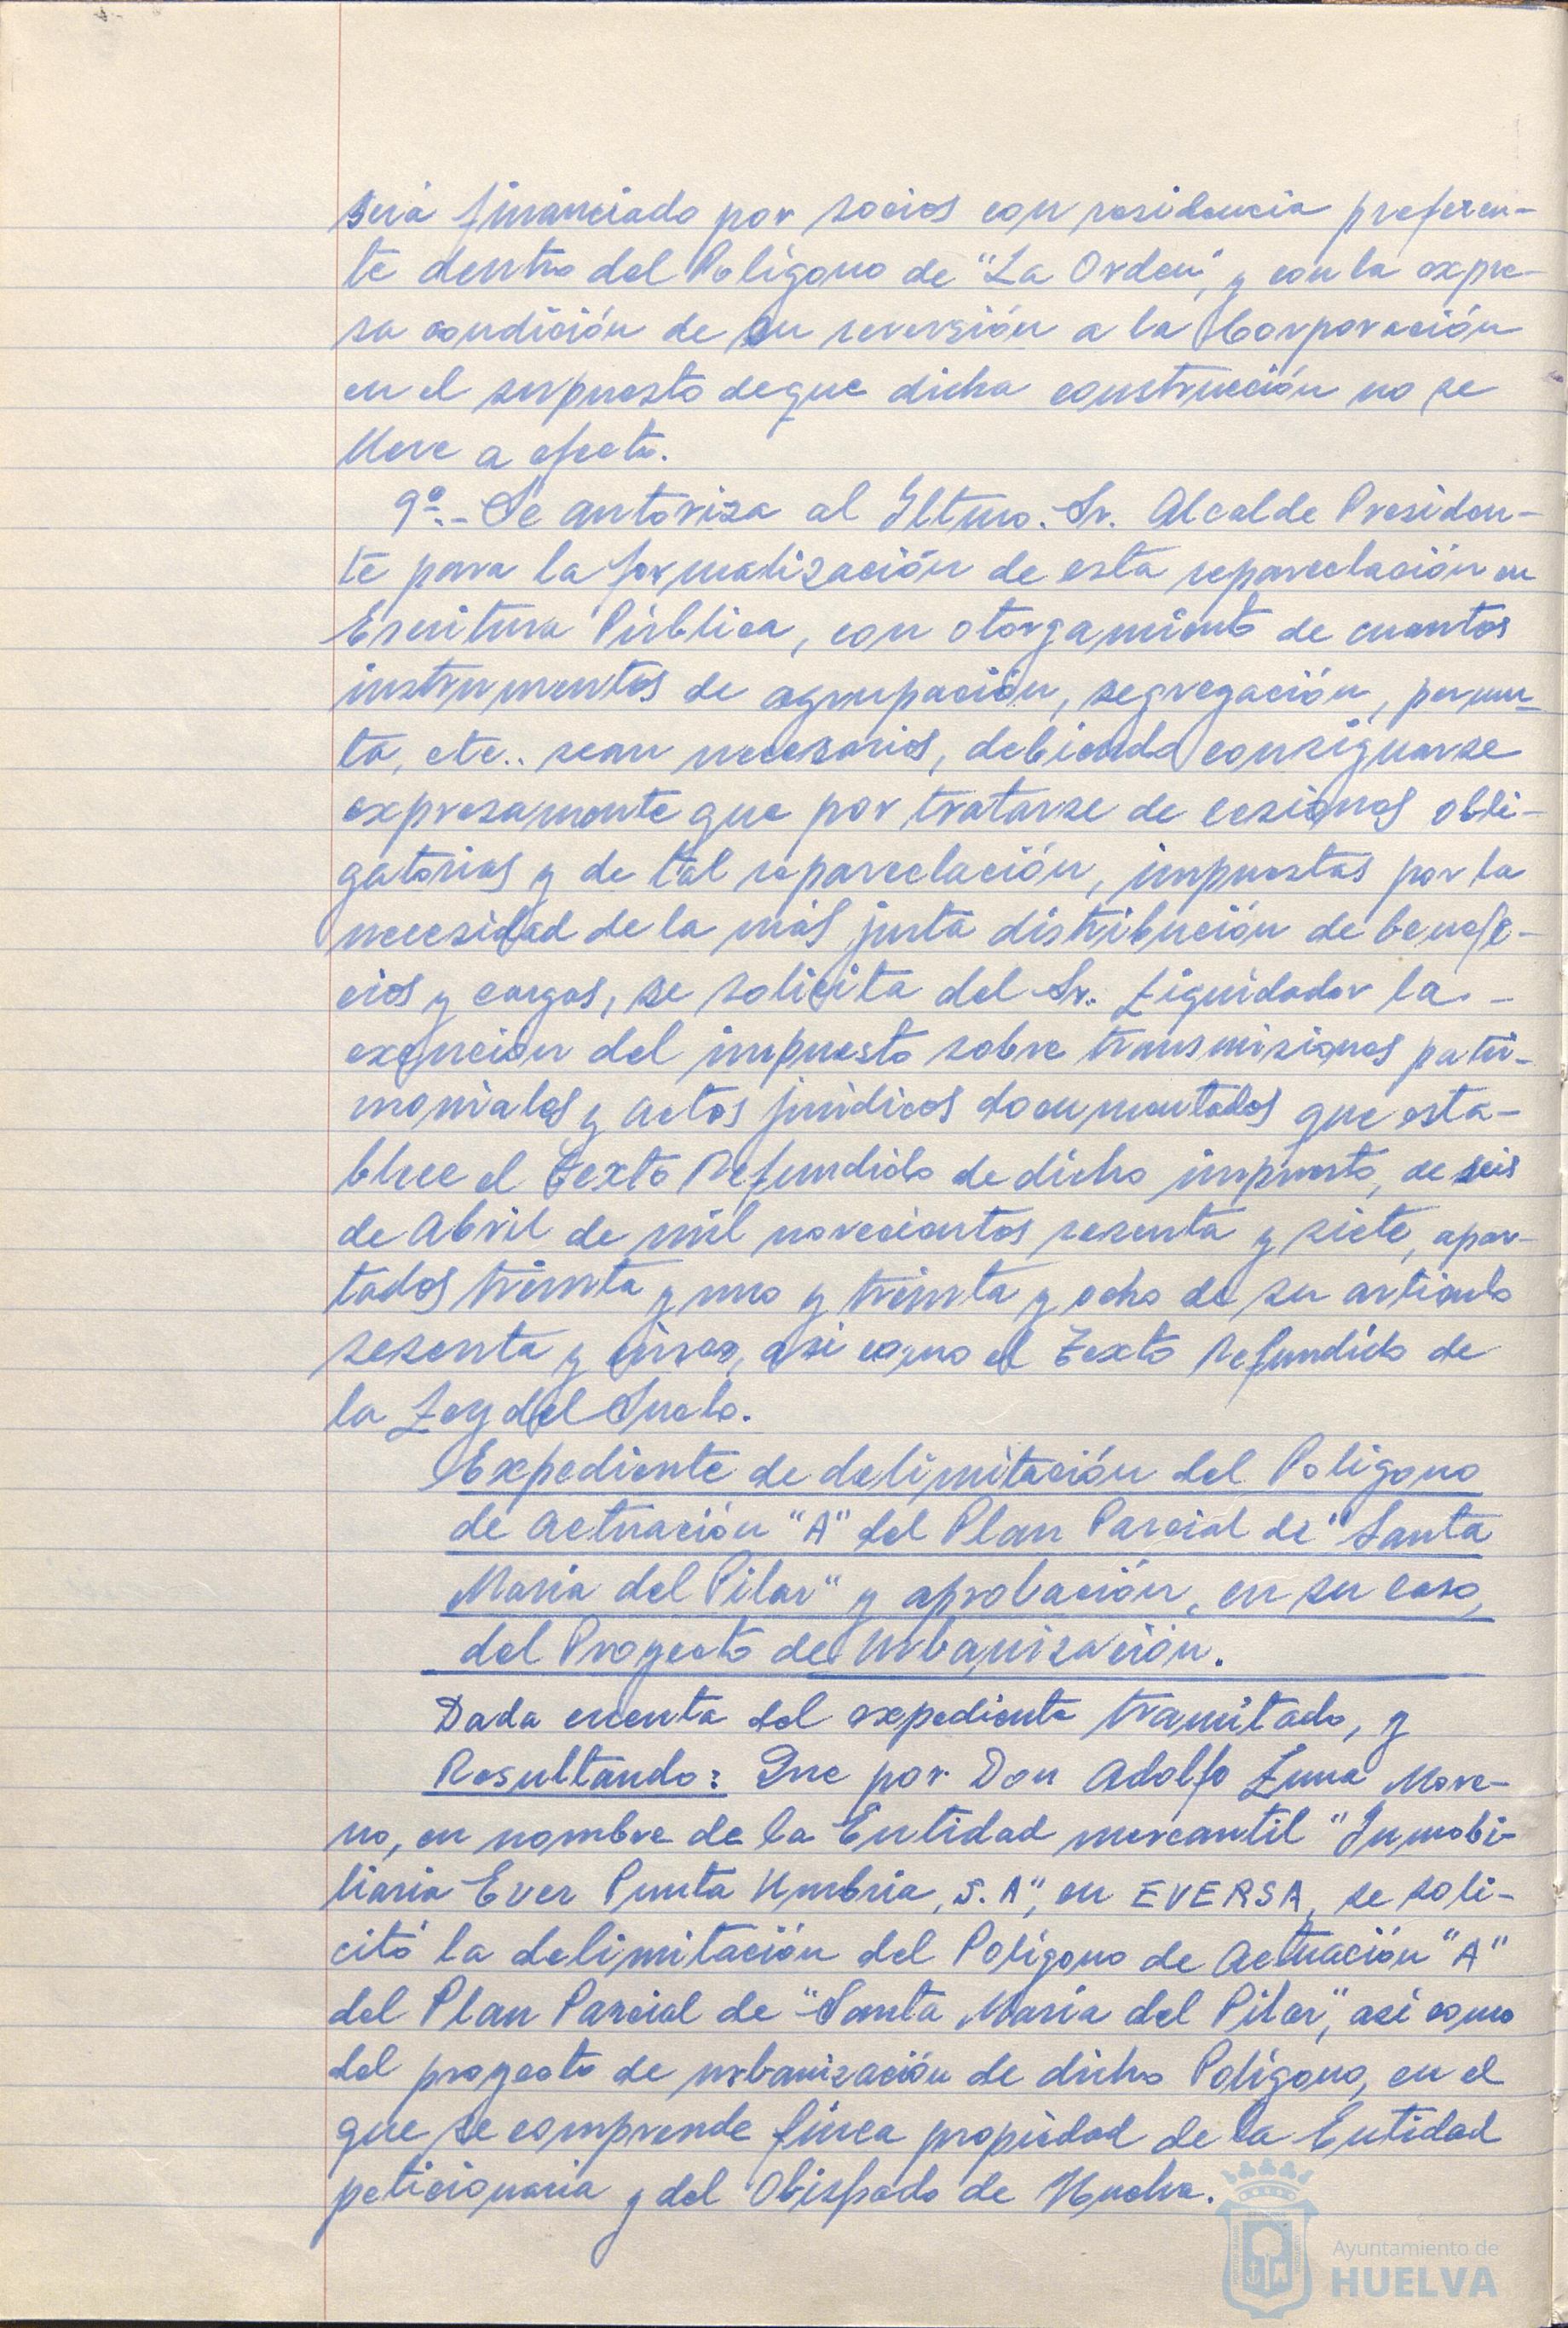 será financiado por socios con residencia preferen-
te dentro del Polígono de "La Orden", y con la expre-
sa condición de su reversión a la Corporación
en el supuesto de que dicha construcción no se
lleve a efecto.
9º.- Se autoriza al Iltmo. Sr. Alcalde Presiden-
te para la formalización de esta reparcelación en
Escritura Pública, con otorgamiento de cuantos
instrumentos de agrupación, segregación, permu-
ta, etc.. sean necesarios, debiendo consignarse
expresamente que por tratarse de cesiones obli-
gatorias y de tal reparcelación, impuestas por la
necesidad de la más justa distribución de benefi-
cios y cargas, se solicita del Sr. Liquidador la. -
exención del impuesto sobre transmisiones patri-
moniales y actos jurídicos documentados que esta-
blece el Texto Refundido de dicho impuesto, de seis
de Abril de mil novecientos sesenta y siete, apar-
tados treinta y uno y treinta y ocho de su artículo
sesenta y cinco, asi como el Texto Refundido de
la Ley del Suelo.
Expediente de delimitación del Poligono
de actuación "A" del Plan Parcial de "Santa
María del Pilar" y aprobación, en su caso,
del Proyecto de Urbanización.
Dada cuenta del expediente tramitado, y
Resultando: Que por Don Adolfo Luna More-
no, en nombre de la Entidad mercantil "Inmobi-
liaria Ever Punta Umbria, S.A", en EVERSA, se soli-
citó la delimitación del Polígono de Actuación "A"
del Plan Parcial de "Santa María del Pilar", asi como
del proyecto de urbanización de dicho Polígono, en el
que se comprende finca propiedad de la Entidad
peticionaria y del Obispado de Huelva.
Ayuntamiento de
HUELVA